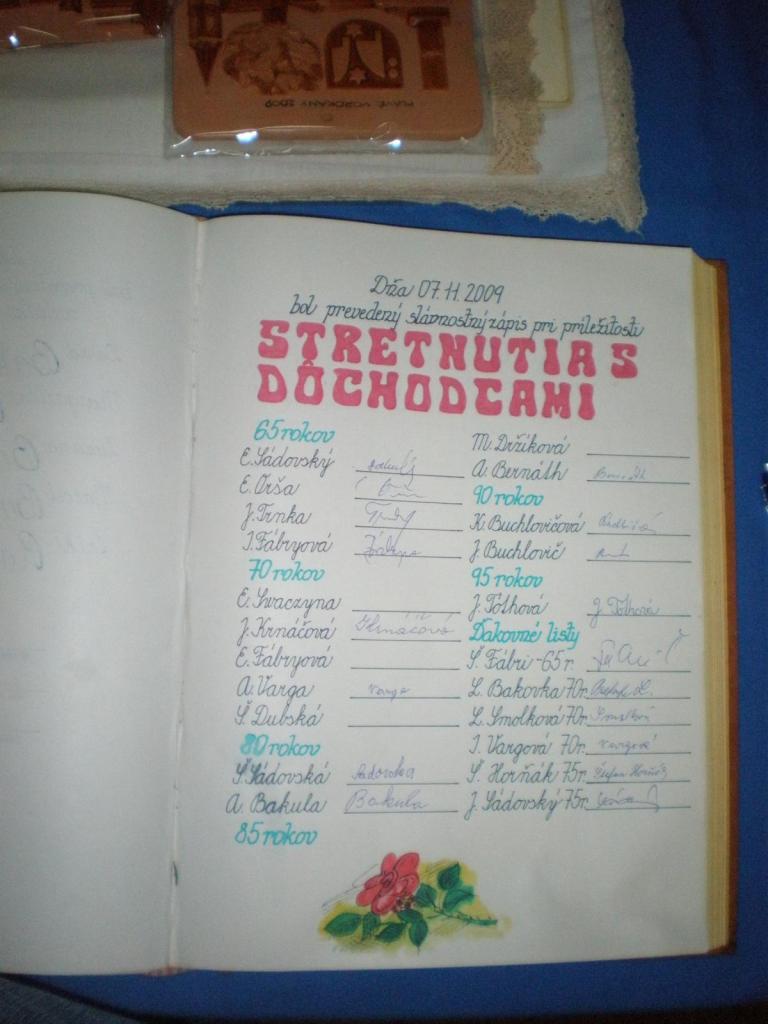 PLAVÉ VOZOKANY 2009
Dňa 07.11.2009
bol prevedený slávnostný zápis pri príležitosti
STRETNUTIA S
DÔCHODCAMI
65 rokov
E. Sádovský
E. Orša
J. Trnka
I. Fábryová
70 rokov
E. Swaczyna
J. Krnáčová Krnáčová
E. Fábryová
A. Varga Varga
Š. Dubská
80 rokov
Š. Sádovská Sadovska
A. Bakula Bakula
85 rokov
M. Držíková
A. Bernáth
90 rokov
K. Buchlovičová
J. Buchlovič
95 rokov
J. Tóthová J. Tóthová
Ďakovné listy
Š. Fábri - 65 r.
L. Bakovka 70r.
L. Smolková 70r.
I. Vargová 70r. Vargová
Š. Horňák 75r. Štefan Horňák
J. Sádovský 75r.